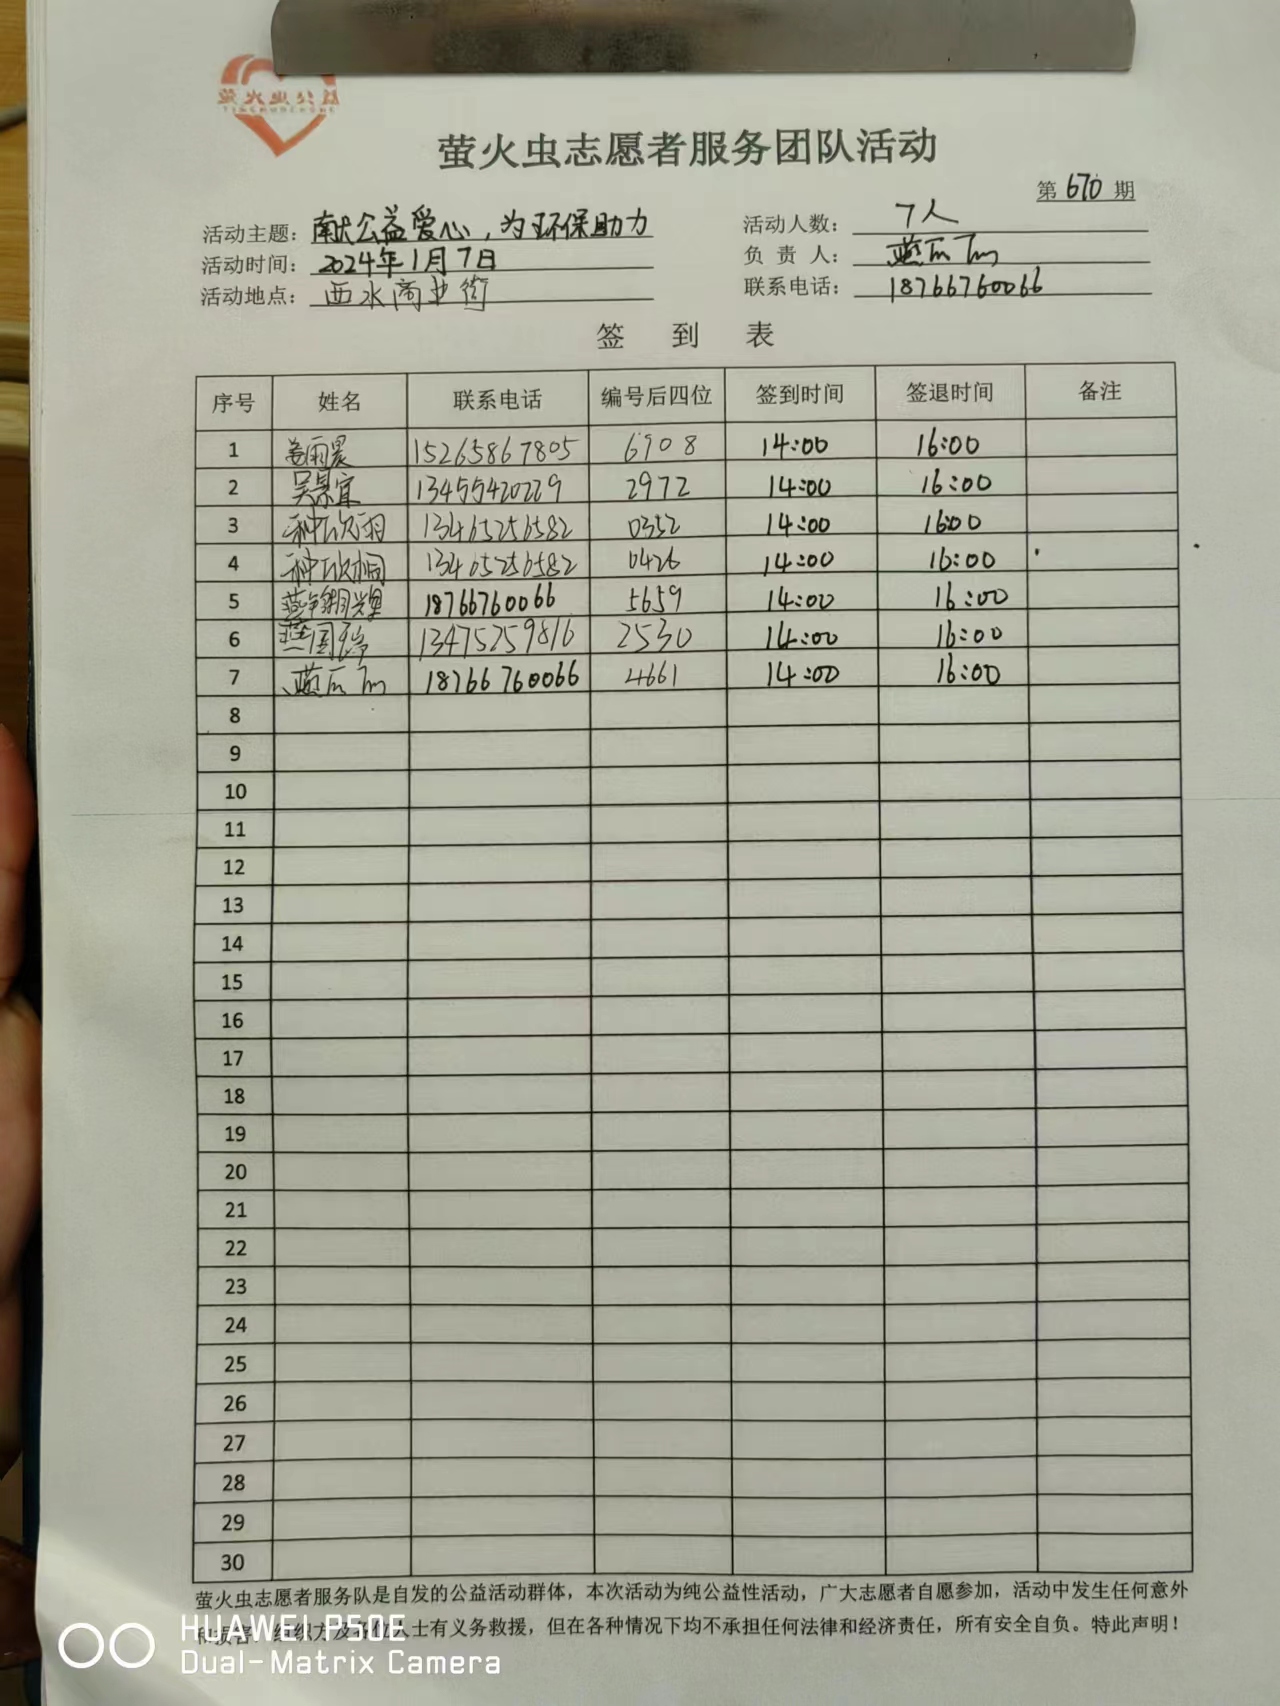 萤火虫公益
YINGHUOCHONG
萤火虫志愿者服务团队活动
第 670 期
活动主题: 献公益爱心,为环保助力
活动人数: 7人
活动时间: 2024年1月7日
负 责 人: 燕
活动地点: 西水商业街
联系电话: 18766760066
签 到 表
序号 姓名 联系电话 编号后四位 签到时间 签退时间 备注
1 姜雨晨 15265867805 6908 14:00 16:00
2 吴景宜 13455420229 2972 14:00 16:00
3 种欣雨 13465256582 0352 14:00 16:00
4 种欣桐 13465256582 0426 14:00 16:00
5 18766760066 5659 14:00 16:00
6 13475259816 2530 14:00 16:00
7 18766760066 4661 14:00 16:00
8
9
10
11
12
13
14
15
16
17
18
19
20
21
22
23
24
25
26
27
28
29
30
萤火虫志愿者服务队是自发的公益活动群体,本次活动为纯公益性活动,广大志愿者自愿参加,活动中发生任何意外
和损害,组织方及各位人士有义务救援,但在各种情况下均不承担任何法律和经济责任,所有安全自负。特此声明!
HUAWEI P50E
Dual-Matrix Camera